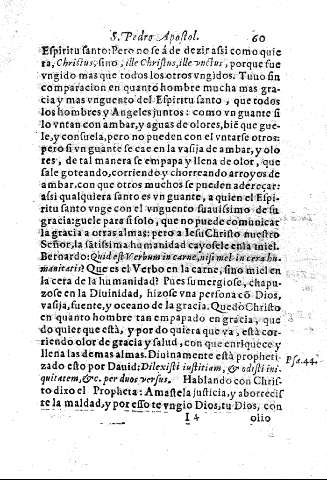 S. Pedro Apostol. 60
Espiritu santo: Pero no se á de dezir assi como quie
ra, Christus, sino, ille Christus, ille vnctus, porque fue
vngido mas que todos los otros vngidos. Tuuo sin
comparacion en quanto hombre mucha mas gra-
cia y mas vnguento del Espiritu santo, que todos
los hombres y Angeles juntos: como vn guante si
lo vntan con ambar, y aguas de olores, biẽ que gue-
le, y consuela, pero no pueden con el vntarse otros:
pero si vn guante se cae en la vasija de ambar, y olo
res, de tal manera se empapa y llena de olor, que
sale goteando, corriendo y chorreando arroyos de
ambar, con que otros muchos se pueden adereçar:
assi qualquiera santo es vn guante, a quien el Espi-
ritu santo vnge con el vnguento suauissimo de su
gracia: guele para si solo, que no puede comunicar
la gracia a otras almas: pero a Iesu Christo nuestro
Señor, la sãtissima humanidad cayosele en la miel.
Bernardo: Quid est Verbum in carne, nisi mel in cera hu
manitatis? Que es el Verbo en la carne, sino miel en
la cera de la humanidad? Pues sumergiose, chapu-
zose en la Diuinidad, hizose vna persona cõ Dios,
vasija, fuente, y oceano de la gracia. Quedò Christo
en quanto hombre tan empapado en gracia, que
do quier que està, y por do quiera que va, està cor-
riendo olor de gracia y salud, con que enriquece y
llena las demas almas. Diuinamente està propheti-
zado esto por Dauid; Dilexisti iustitiam, & odisti ini-
quitatem, &c. per duos versus. Hablando con Chris-
to dixo el Propheta: Amaste la justicia, y aborrecis
te la maldad, y por esso te vngio Dios, tu Dios, con
Psa. 44.
I 4 olio